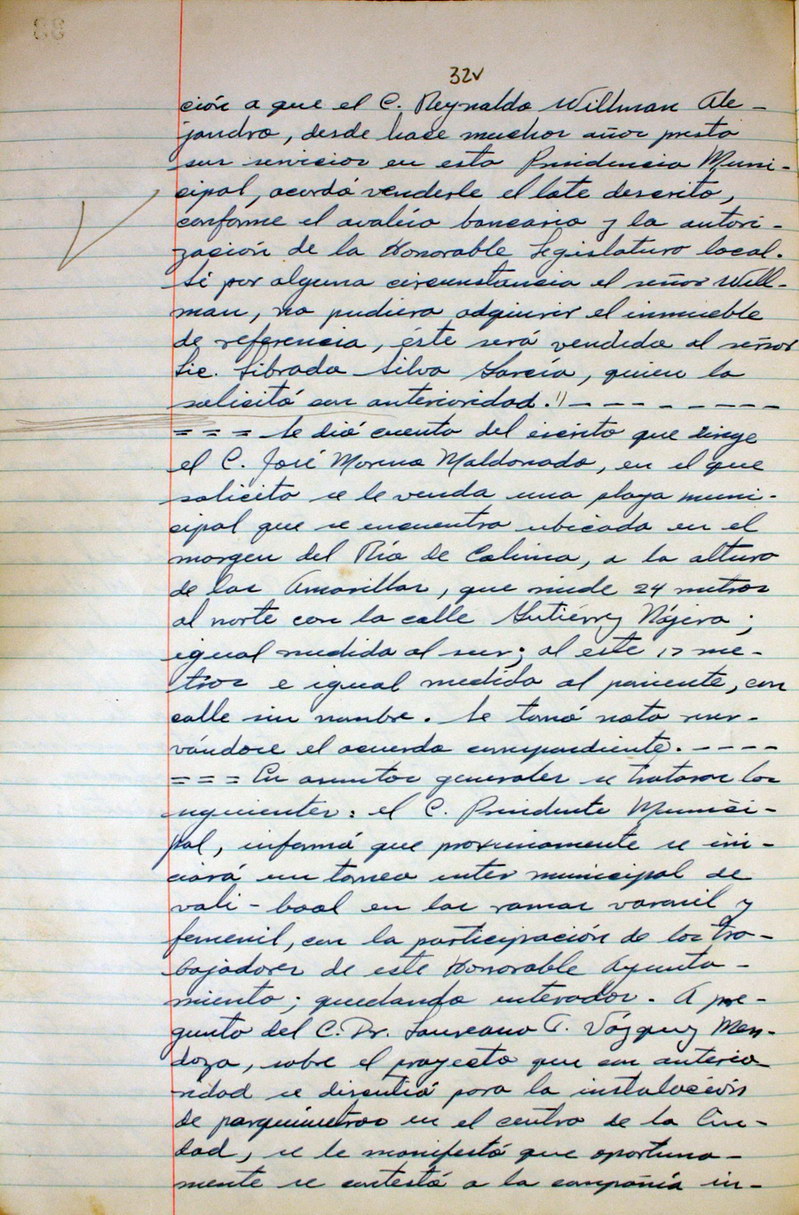 32v
ción a que el C. Reynaldo Willman Ale-
jandro, desde hace muchos años presta
sus servicios en esta Presidencia Muni-
cipal, acordó venderle el lote descrito,
conforme el avalúo bancario y la autori-
zación de la Honorable Legislatura local.
Si por alguna circunstancia el señor Will-
man, no pudiera adquirir el inmueble
de referencia, éste será vendido al señor
Lic. Librado Silva García, quien lo
solicitó con anterioridad." - - - - - - - - -
= = = Se dió cuenta del escrito que dirige
el C. José Moreno Maldonado, en el que
solicita se le venda una playa muni-
cipal que se encuentra ubicada en el
margen del Río de Colima, a la altura
de las Amarillas, que mide 24 metros
al norte con la calle Gutiérrez Nájera;
igual medida al sur; al este 17 me-
tros e igual medida al poniente, con
calle sin nombre. Se tomó nota reser-
vándose el acuerdo correspondiente. - - - -
= = = En asuntos generales se trataron los
siguientes: el C. Presidente Munici-
pal, informó que proximamente se ini-
ciará un torneo inter municipal de
vali-bool en las ramas varonil y
femenil, con la participación de los tra-
bajadores de este Honorable Ayunta-
miento; quedando enterados. A pre-
gunta del C. Dr. Laureano T. Vázquez Men-
doza, sobre el proyecto que con anterio-
ridad se discutió para la instalación
de parquímetros en el centro de la Ciu-
dad, se le manifestó que oportuna-
mente se contestó a la compañía in-